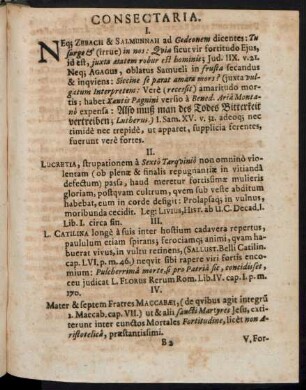 CONSECTARIA.
I.
Neq; Zebach & Salmunnah ad Gedeonem dicentes: Tu
surge & (irrue) in nos: Qvia sicut vir fortitudo Ejus,
id est, juxta ætatem robur est hominis; Jud. IIX. v. 21.
Neq; Agagus, oblatus Samueli in frusta secandus
& inqviens: Siccine separat amara mors? (juxta vul-
gatum Interpretem: Verè (recessit) amaritudo mor-
tis; habet Xantis Pagnini versio à Bened. Ariâ Monta-
nô expensa: Also muß man des Todes Bitterkeit
vertreiben; Lutherus) I. Sam. XV. v. 32. adeoq; nec
timidè nec trepidè, ut apparet, supplicia ferentes,
fuerunt verè fortes.
II.
Lucretia, stuprationem à Sextô Tarqviniô non omninò vio-
lentam (ob plenæ & finalis repugnantiæ in vitiandâ
defectum) passa, haud meretur fortissimæ mulieris
gloriam, postqvam cultrum, qvem sub veste abditum
habebat, eum in corde defigit: Prolapsaq; in vulnus,
moribunda cecidit. Leg: Livius, Hist. ab U.C. Decad. I.
Lib. I. circa fin.
III.
L. Catilina longè à suis inter hostium cadavera repertus,
paululum etiam spirans; ferociamq; animi, qvam ha-
buerat vivus, in vultu retinens, (Sallust. Belli Catilin-
cap. LVI. p. m. 46.) neqvit sibi rapere viri fortis enco-
mium: Pulcherrimâ morte, si pro Patriâ sic, concidisset,
ceu judicat L. Florus Rerum Rom. Lib. IV. cap. I. p. m.
170.
IV.
Mater & septem Fratres Maccabæi, (de qvibus agit integrũ
2. Maccab. cap. VII.) ut & alii sancti Martyres Jesu, exti-
terunt inter cunctos Mortales Fortitudine, licèt non A-
ristotelicâ, præstantissimi.
B 2
V. For-